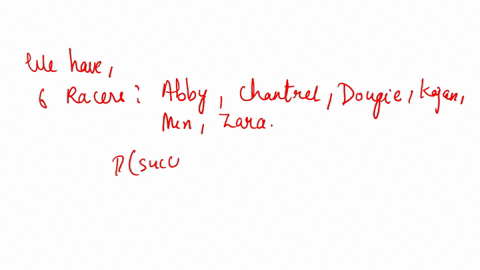 We have,
6 Racers : Abby, Chantrel, Dougie, Kojan,
Min, Zara.
P(succ